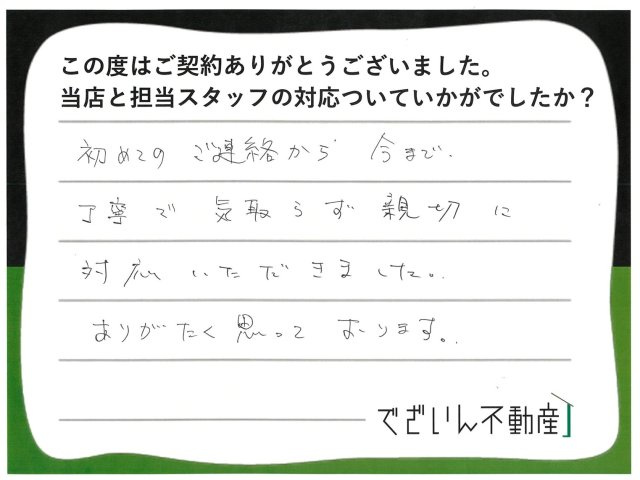 この度はご契約ありがとうございました。
当店と担当スタッフの対応ついていかがでしたか？
初めてのご連絡から今まで、
丁寧で気取らず親切に
対応いただきました。
ありがたく思っております。
でざいん不動産